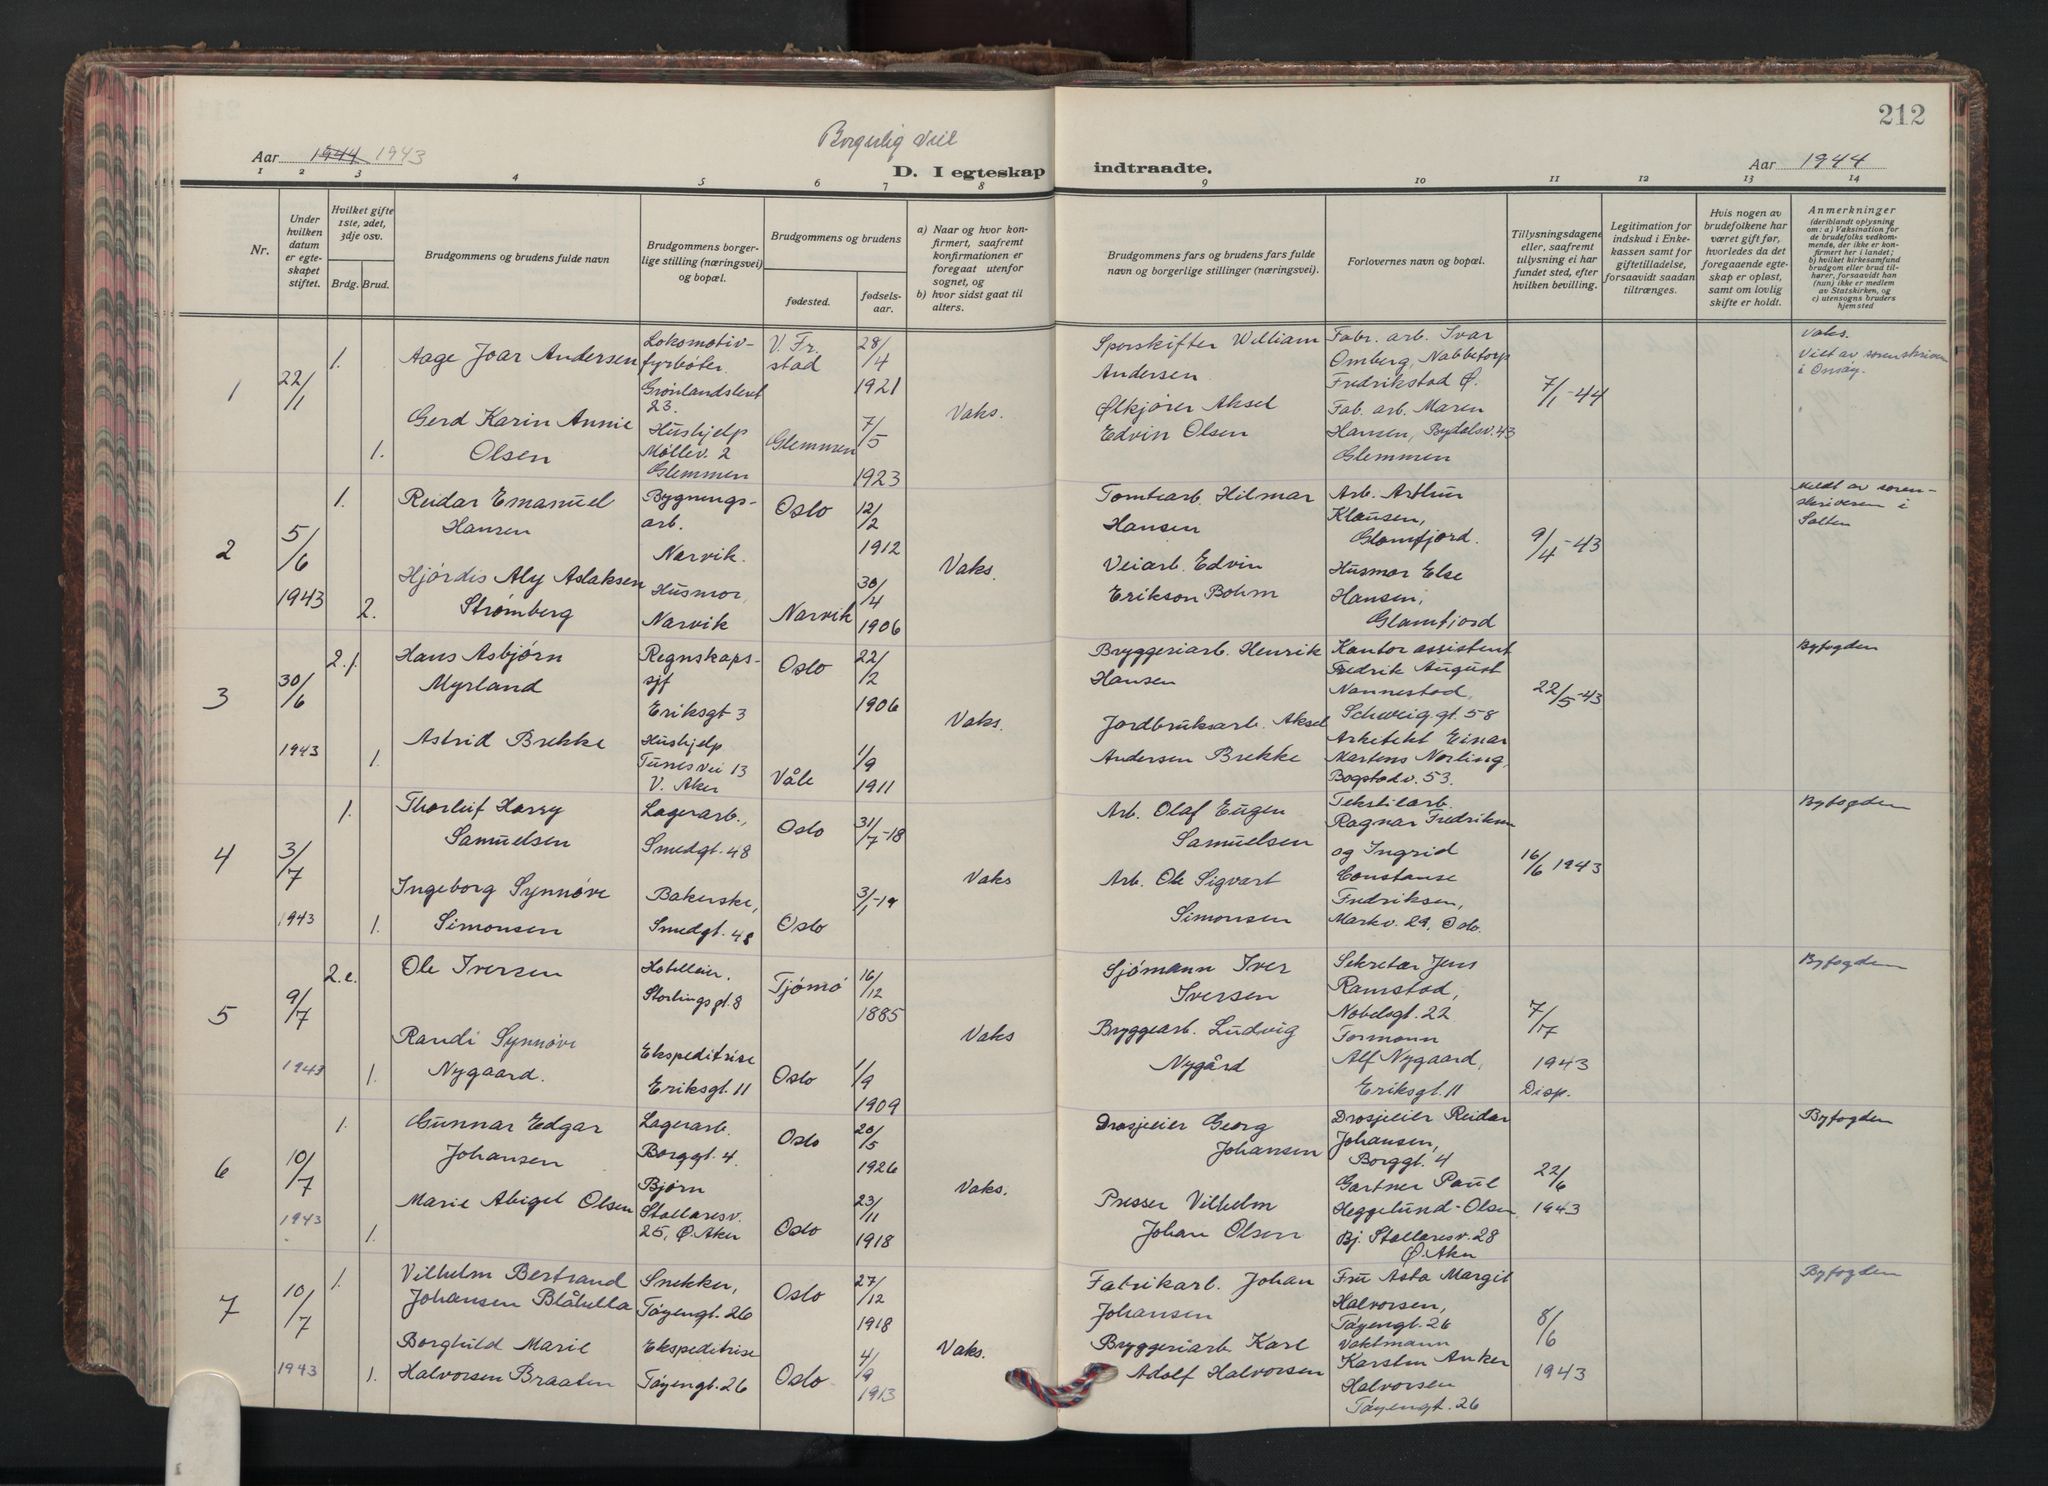 212
Borgerlig viet
Aar 1944 1943
D. I egteskap indtraadte.
Aar 1944
1 2 3 4 5 6 7 8 9 10 11 12 13 14
Nr.
Under hvilken datum er egteskapet stiftet.
Hvilket gifte 1ste, 2det, 3dje osv.
Brdg. Brud.
Brudgommens og brudens fulde navn
Brudgommens borgerlige stilling (næringsvei) og bopæl.
Brudgommens og brudens
fødested.
fødselsaar.
a) Naar og hvor konfirmert, saafremt konfirmationen er foregaat utenfor sognet, og
b) hvor sidst gaat til alters.
Brudgommens fars og brudens fars fulde navn og borgerlige stillinger (næringsvei).
Forlovernes navn og bopæl.
Tillysningsdagene eller, saafremt tillysning ei har fundet sted, efter hvilken bevilling.
Legitimation for indskud i Enkekassen samt for giftetilladelse, forsaavidt saadan tiltrænges.
Hvis nogen av brudefolkene har været gift før, hvorledes da det foregaaende egteskap er opløst, samt om lovlig skifte er holdt.
Anmerkninger
(deriblandt oplysning om: a) Vaksination for de brudefolks vedkommende, der ikke er konfirmert her i landet; b) hvilket kirkesamfund brudgom eller brud tilhører, forsaavidt han (hun) ikke er medlem av Statskirken, og c) utensogns bruders hjemsted
1
22/1
1.
Aage Joar Andersen
Lokomotivfyrbøter.
Grønlandsleret 23.
V. Fr.stad
28/4 1921
Vaks.
Sporskifter William Andersen
Fabr. arb. Ivar Omberg, Nabbetorp
Fredrikstad Ø.
7/1-44
Vaks.
Viet av sorenskriver i Onsøy.
1.
Gerd Karin Annie Olsen
Hushjelp
Møllev. 2
Glemmen
Glemmen
7/5 1923
Ølkjører Aksel Edvin Olsen
Fab. arb. Maren Hansen, Bydalsv. 43
Glemmen
2
5/6 1943
1.
Reidar Emanuel Hansen
Bygningsarb.
Narvik.
Oslo
12/2 1912
Vaks.
Tomtearb. Hilmar Hansen
Arb. Arthur Klausen,
Glomfjord.
9/4-43
Meldt av sorenskriveren i Salten
2.
Hjørdis Aly Aslaksen Strømberg
Husmor,
Narvik
Narvik
30/4 1906
Veiarb. Edvin Erikson Bohm
Husmor Else Hansen,
Glomfjord
3
30/6 1943
2. f.
Hans Asbjørn Myrland
Regnskapssjf
Eriksgt 3
Oslo
22/2 1906
Vaks.
Bryggeriarb. Henrik Hansen
Kontorassistent Fredrik August Nannestad,
Schweig. gt. 58
22/5-43
Byfogden
1.
Astrid Brekke
Hushjelp
Tunes vei 13
V. Aker
Våle
1/9 1911
Jordbruksarb. Aksel Andersen Brekke
Arkitekt Einar Martens Norling,
Bogstadv. 53.
4
3/7 1943
1.
Thorleif Harry Samuelsen
Lagerarb.,
Smedgt. 48
Oslo
31/7-18
Vaks
Arb. Olaf Eugen Samuelsen
Tekstilarb. Ragnar Fredriksen og Ingrid Constanse Fredriksen,
Markv. 29, Oslo.
16/6 1943
Byfogden
1.
Ingeborg Synnøve Simonsen
Bakerske,
Smedgt. 48
Oslo
3/1-19
Arb. Ole Sigvart Simonsen
5
9/7 1943
2. e.
Ole Iversen
Hotelleier.
Stortingsgt. 8
Tjømø
16/12 1885
Vaks
Sjømann Iver Iversen
Sekretær Jens Ramstad,
Nobelsgt. 22
7/7 1943
Disp.
Byfogden
1.
Randi Synnøve Nygaard.
Ekspeditrise
Eriksgt. 11
Oslo
1/9 1909
Bryggearb. Ludvig Nygård
Formann Alf Nygaard,
Eriksgt. 11
6
10/7 1943
1.
Gunnar Edgar Johansen
Lagerarb.
Borggt. 4.
Oslo
20/5 1926
Vaks.
Drosjeeier Georg Johansen
Drosjeeier Reidar Johansen,
Borggt. 4
22/6 1943
Byfogden
1.
Marie Abigel Olsen
Bjørn Stallaresv. 25, Ø. Aker
Oslo
23/11 1918
Presser Vilhelm Johan Olsen
Gartner Paul Heggelund-Olsen
Bj. Stallaresv. 28
Ø. Aker
7
10/7 1943
1.
Vilhelm Bertrand Johansen Blåhella
Snekker,
Tøyengt. 26
Oslo
27/12 1918
Vaks.
Fabrikarb. Johan Johansen
Fru Asta Margit Halvorsen,
Tøyengt. 26
8/6 1943
Byfogden
1.
Borghild Marie Halvorsen Braaten
Ekspeditrise
Tøyengt. 26
Oslo
4/9 1913
Bryggeriarb. Karl Adolf Halvorsen
Vaktmann Karsten Anker Halvorsen
Tøyengt. 26